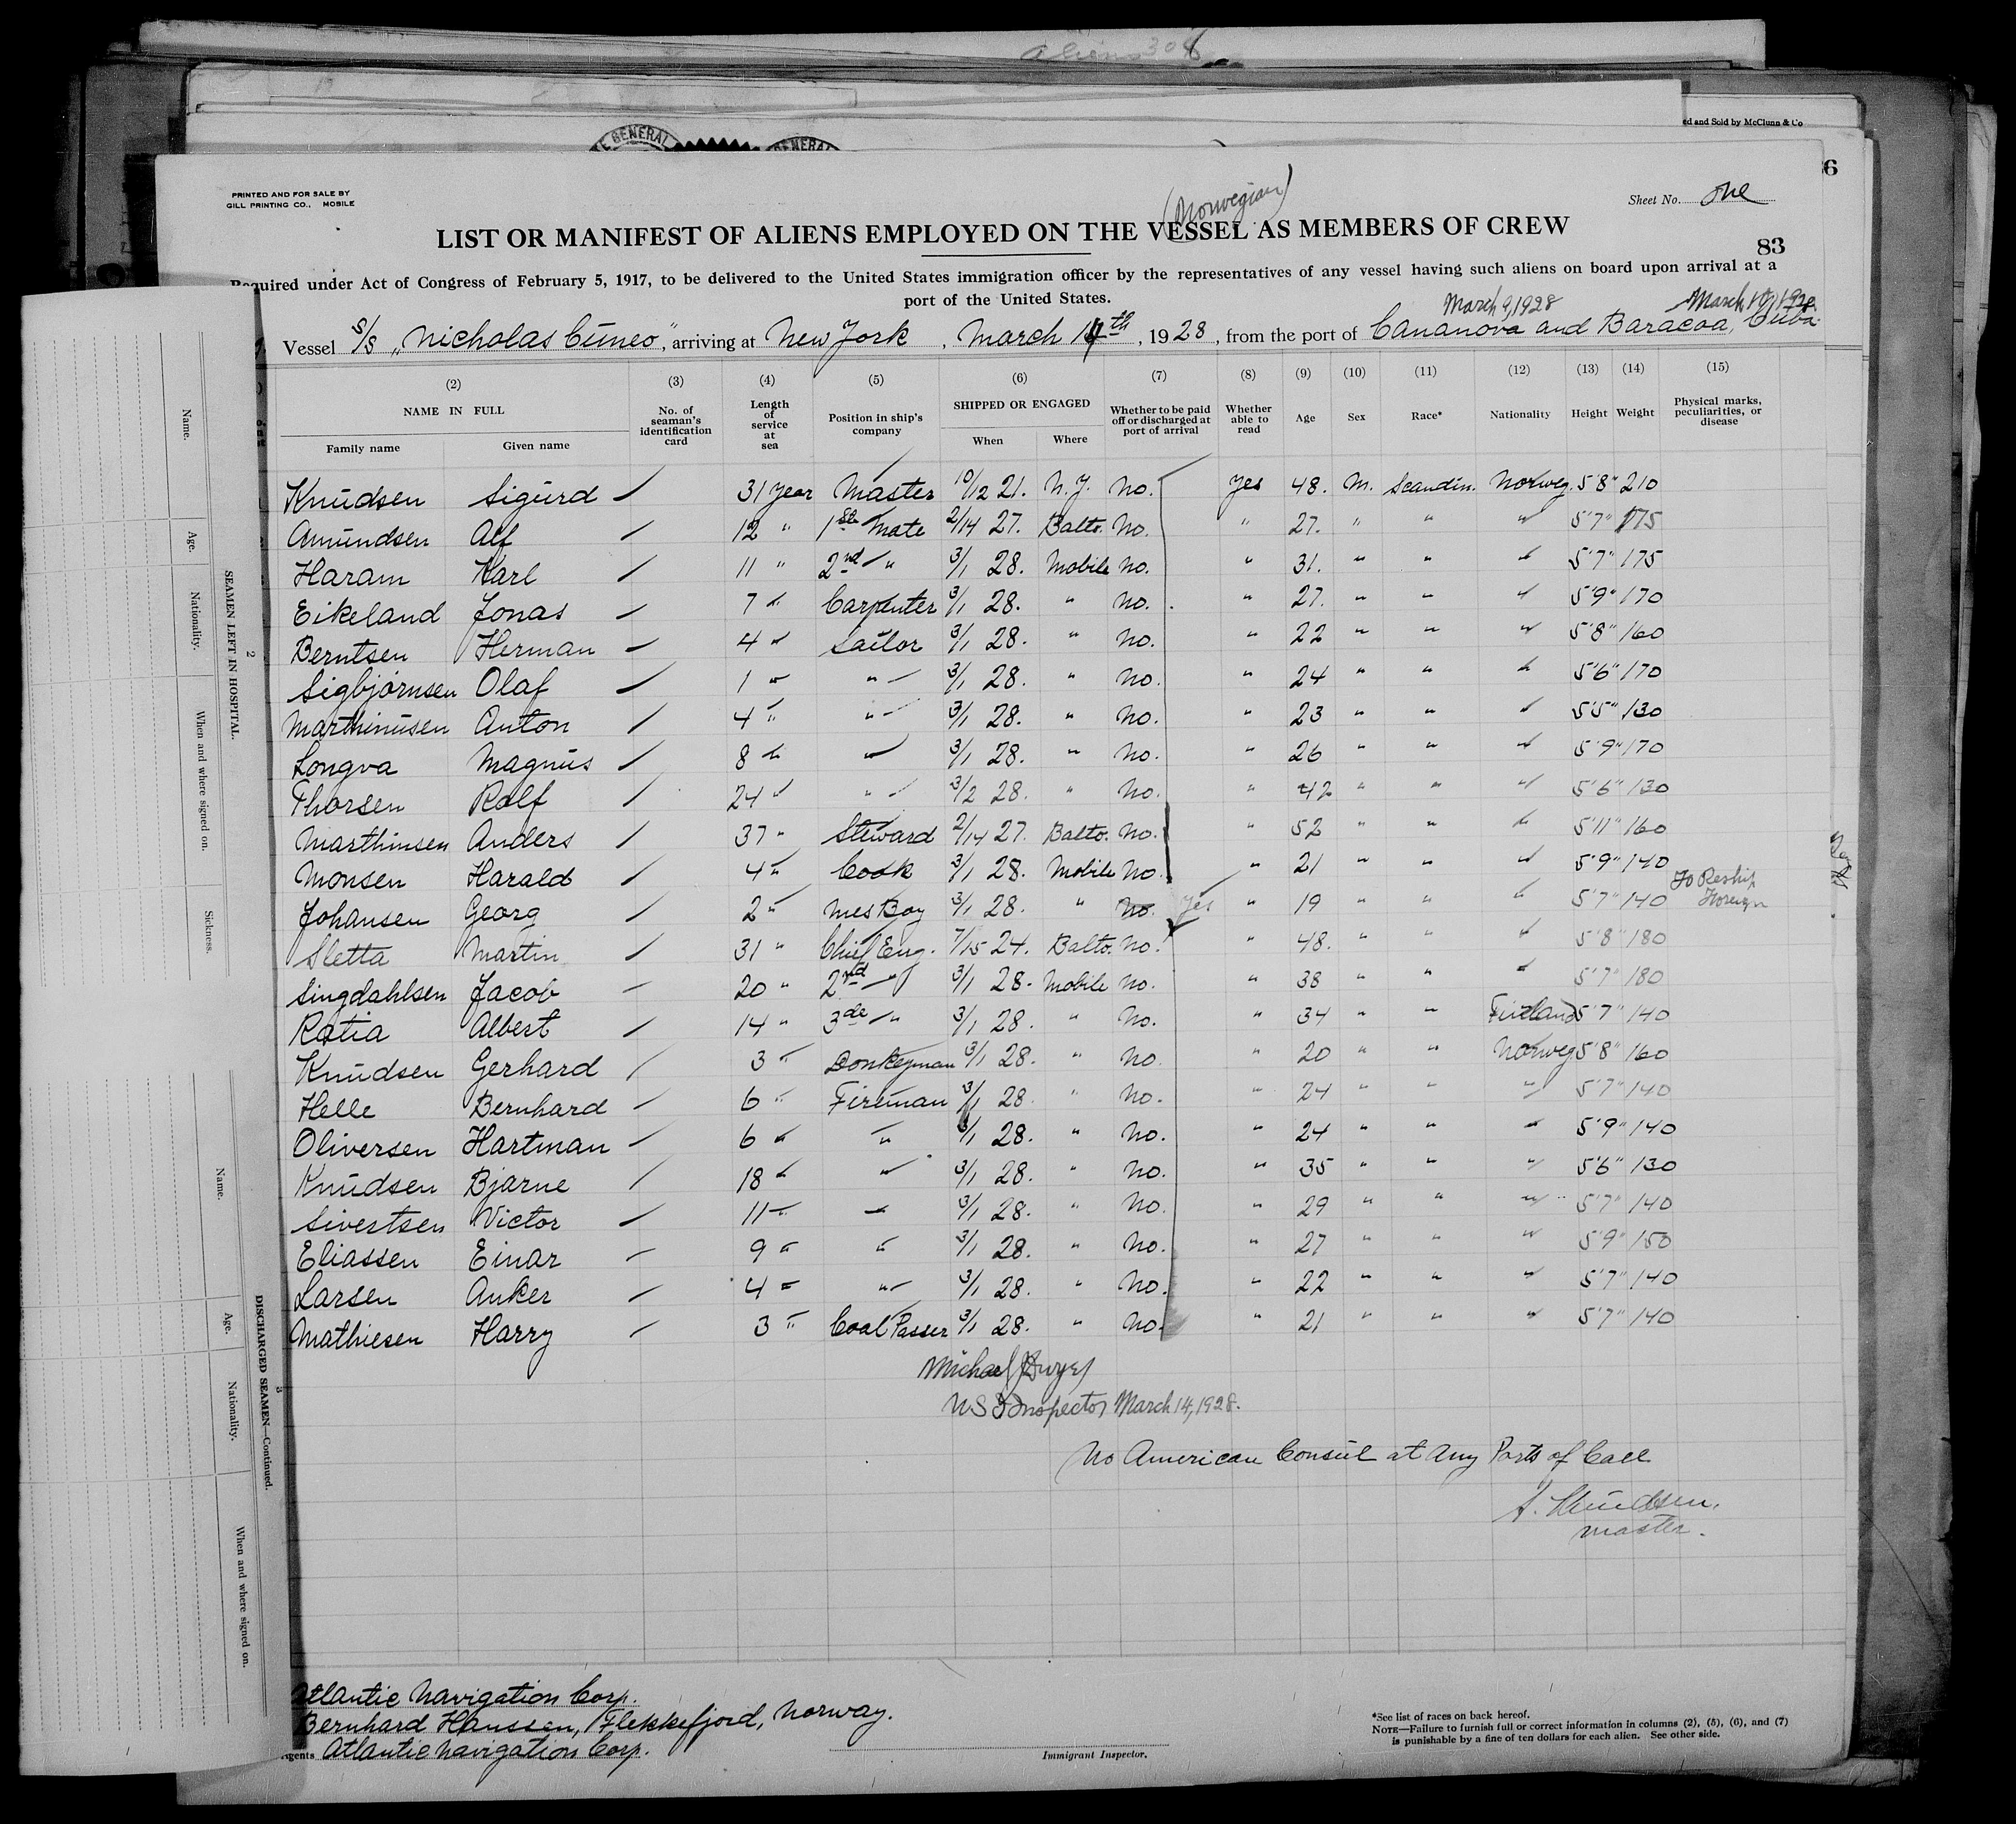 Aliens 306
ed and Sold by McClunn & Co
E GENERAL
GENERAL
6
PRINTED AND FOR SALE BY
GILL PRINTING CO., MOBILE
(Norwegian)
Sheet No. One
LIST OR MANIFEST OF ALIENS EMPLOYED ON THE VESSEL AS MEMBERS OF CREW
83
Required under Act of Congress of February 5, 1917, to be delivered to the United States immigration officer by the representatives of any vessel having such aliens on board upon arrival at a
port of the United States.
March 9, 1928
Vessel S/S „Nicholas Cuneo", arriving at New York, March 14th, 1928, from the port of Cananova and Baracoa, Cuba
(2) (3) (4) (5) (6) (7) (8) (9) (10) (11) (12) (13) (14) (15)
NAME IN FULL No. of seaman's identification card Length of service at sea Position in ship's company SHIPPED OR ENGAGED Whether to be paid off or discharged at port of arrival Whether able to read Age Sex Race* Nationality Height Weight Physical marks, peculiarities, or disease
Family name Given name When Where
Knudsen Sigurd 31 year Master 10/12 21. N.Y. No. Yes 48. M. Scandin. Norweg. 5'8" 210
Amundsen Alf 12 " 1st Mate 2/14 27. Balto. No. " 27. " " " 5'7" 175
Haram Karl 11 " 2nd " 3/1 28. Mobile No. " 31. " " " 5'7" 175
Eikeland Jonas 7 " Carpenter 3/1 28. " No. " 27. " " " 5'9" 170
Berntsen Herman 4 " Sailor 3/1 28. " No. " 22 " " " 5'8" 160
Sigbjørnsen Olaf 1 " " 3/1 28. " No. " 24 " " " 5'6" 170
Marthinusen Anton 4 " " 3/1 28. " No. " 23 " " " 5'5" 130
Longva Magnus 8 " " 3/1 28. " No. " 26 " " " 5'9" 170
Thorsen Rolf 24 " " 3/2 28. " No. " 42 " " " 5'6" 130
Marthinsen Anders 37 " Steward 2/14 27. Balto. No. " 52 " " " 5'11" 160
Monsen Harald 4 " Cook 3/1 28. Mobile No. " 21 " " " 5'9" 140
Johansen Georg 2 " Mes Boy 3/1 28. " No. Yes " 19 " " " 5'7" 140 To Reship Foreign
Sletta Martin 31 " Chief Eng. 7/15 24. Balto. No. " 48. " " " 5'8" 180
Singdahlsen Jacob 20 " 2nd " 3/1 28. Mobile No. " 38 " " " 5'7" 180
Ratia Albert 14 " 3de " 3/1 28. " No. " 34 " " Finland 5'7" 140
Knudsen Gerhard 3 " Donkeyman 3/1 28. " No. " 20 " " Norweg 5'8" 160
Helle Bernhard 6 " Fireman 3/1 28. " No. " 24 " " " 5'7" 140
Oliversen Hartman 6 " " 3/1 28. " No. " 24 " " " 5'9" 140
Knudsen Bjarne 18 " " 3/1 28. " No. " 35 " " " 5'6" 130
Sivertsen Victor 11 " " 3/1 28. " No. " 29 " " " 5'7" 140
Eliassen Einar 9 " " 3/1 28. " No. " 27 " " " 5'9" 150
Larsen Anker 4 " " 3/1 28. " No. " 22 " " " 5'7" 140
Mathiesen Harry 3 " Coal Passer 3/1 28. " No. " 21 " " " 5'7" 140
Michael Dwyer
U S I Inspector March 14, 1928.
No American Consul at Any Ports of Call
S. Knudsen.
master.
Atlantic Navigation Corp.
Bernhard Hanssen, Flekkefjord, Norway.
Agents Atlantic Navigation Corp.
Immigrant Inspector.
*See list of races on back hereof.
NOTE—Failure to furnish full or correct information in columns (2), (5), (6), and (7)
is punishable by a fine of ten dollars for each alien. See other side.
2
SEAMEN LEFT IN HOSPITAL.
Name. Age. Nationality. When and where signed on. Sickness.
3
DISCHARGED SEAMEN—Continued.
Name. Age. Nationality. When and where signed on.